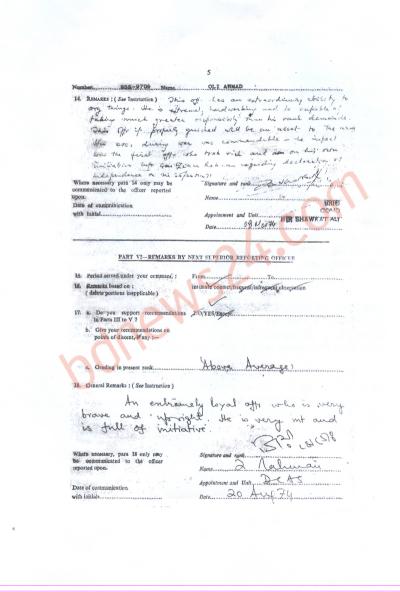 5
Number BSS-9709 Name OLI AHMAD
14. REMARKS : (See Instruction) This off has an extraordinary ability to
org things. He is extremely hardworking and is capable of
taking much greater responsibility than his rank demands.
This offr if properly guided will be an asset to the army
His
during war was commendable — in
was the first offr who took risk and on his own
initiative
regarding declaration of
independence on
Where necessary para 14 only may be
communicated to the officer reported
upon.
Date of communication
with initials
Signature and rank
Name
Appointment and Unit
Date
MIR SHAWKAT ALI
PART VI—REMARKS BY NEXT SUPERIOR REPORTING OFFICER
15. Period served under your command : From To
16. Remarks based on :
(delete portions inapplicable)
intimate contact/frequent/infrequent observation
17. a. Do you support recommendations
in Part III to V ?
b. Give your recommendations on
points of discent, if any :—
c. Grading in present rank Above Average
18. General Remarks : (See Instruction)
An extremely loyal offr who is very
brave and upright. He is very
and
is full of initiative.
Where necessary, para 18 only may
be communicated to the officer
reported upon.
Date of communication
with initials
Signature and rank
Name Z Rahman
Appointment and Unit DCAS
Date 20 Aug 74
bdnews24.com